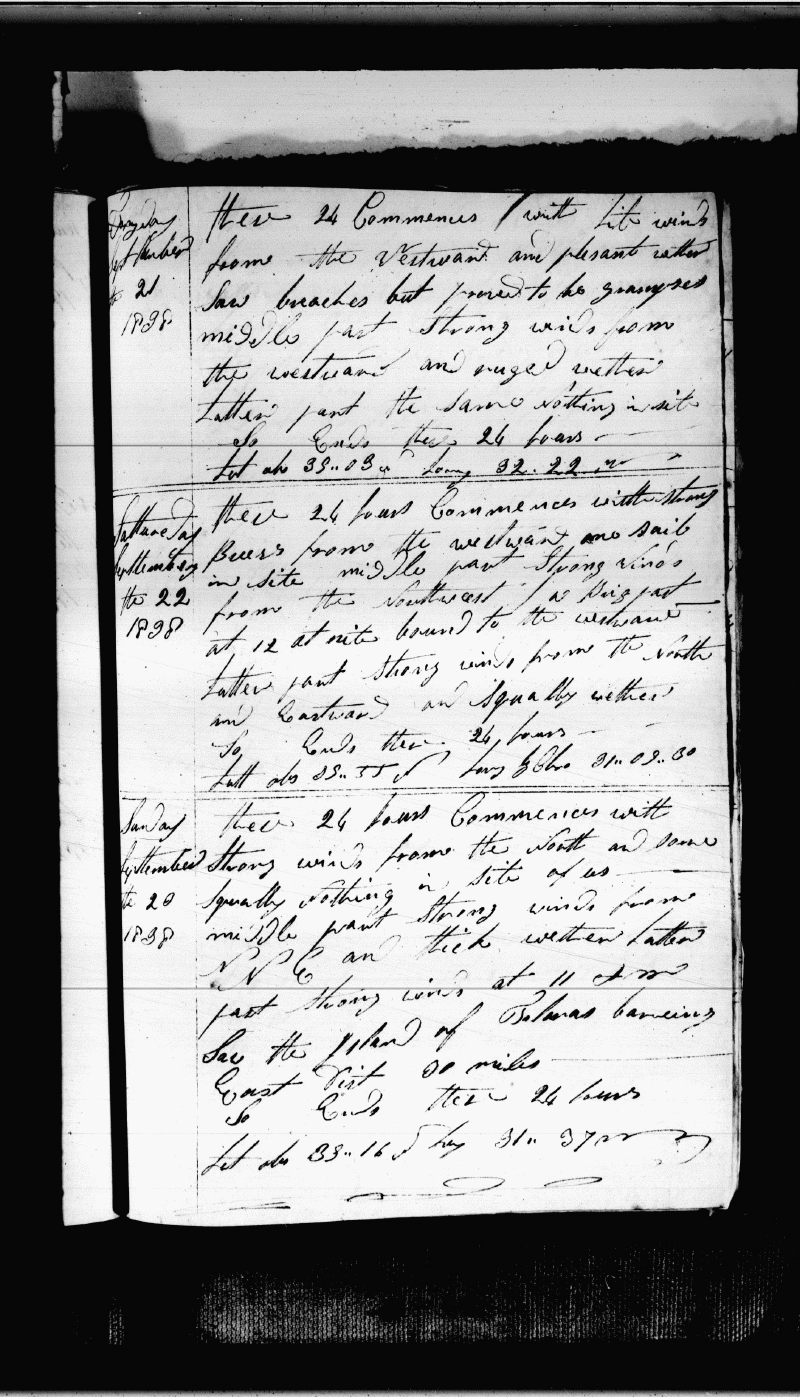 Fryday
September
the 21
1838
these 24 Commences with Lite winds
frome the Westward and plesant wether
Saw breaches but proved to be grampses
middle part Strong winds from
the westward and ruged wether
Latter part the Same Nothing in site
So Ends these 24 hours
Lat obs 39..03 Long 32..22
Satturday
September
the 22
1838
these 24 hours Commences with strong
from the westward one sail
in site middle part Strong winds
from the Northwest a Brig past
at 12 at nite bound to the westward
Latter part Strong winds from the North
and Eastward and Squally wether
So Ends these 24 hours
Latt obs Long
Sunday
September
the 23
1838
these 24 hours Commences with
Strong winds frome the North and some
Squally Nothing in site of us
middle part Strong winds frome
N N E and thick wether Latter
part Strong winds at 11
Saw the Island of
East Dist 30 miles
So Ends these 24 hours
Lat obs 39..16 Long 31..37